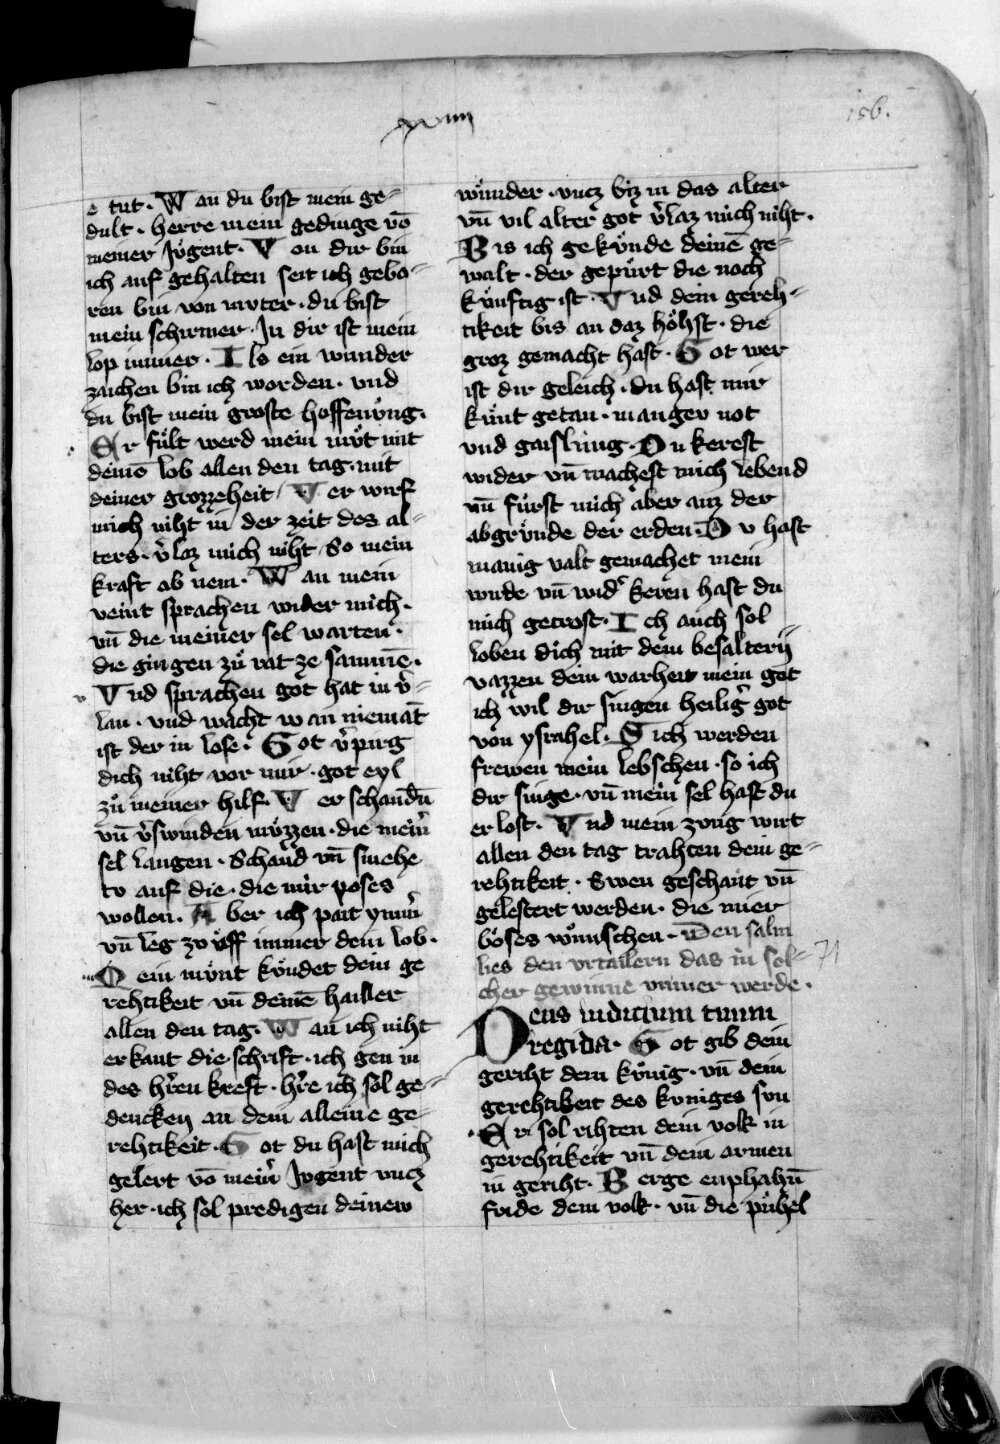 xxviiii
156.
e tut · Wan du bist mein ge-
dult · herre mein gedinge vō
meiner Jvͦgent · Von dir bin
ich auf gehalten seit ich gebo-
ren bin von mvter · du bist
mein schirmer · In dir ist mein
lop immer · Als ein wunder
zaichen bin ich worden · vnd
du bist mein groste hoffenvng ·
Er fuͤlt werd mein mvͦt mit
deinē lob allen den tag · mit
deiner grozzeheit / Ver wirf
mich niht in der zeit des al-
ters · v̓laz mich niht / So mein
kraft ab nem · Wan mein
veint sprachen wider mich ·
vn̄ die meiner sel warten ·
die gingen zuͦ rat ze samme̅ ·
Vnd sprachen got hat in v̓-
lan · vnd wacht wan niemāt
ist der in lose · Got v̓pirg
dich niht vor mir · got eyl
zuͦ meiner hilf · Ver schandn̄
vn̄ v̓swinden mvͤzzen · die mein̓
sel langen · Schand vn̄ smehe
to auf die · die mir poses
wollen · Aber ich pait ymm̓
vn̄ leg zv vͦff immer dein lob ·
Dein mvͦnt kvͤndet dein ge
rehtikeit vn̄ deinē hailler
allen den tag · Wan ich niht
erkant die schrift · ich gen in
des hr̓en kreft · hr̓e ich sol ge-
dencken an dein alleine ge-
rehtikeit · Got du hast mich
gelert vō mein̓ Jvgent vncz
her · ich sol predigen deinew
wuͤnder · vncz biz in das alter
vn̄ vil alter got v̓laz mich niht ·
Bis ich gekuͤnde deinē ge-
walt · der gepuͤrt die noch
kuͤnftig ist · Vnd dein gereh-
tikeit bis an daz hoͤhst · die
groz gemacht hast · Got wer
ist dir geleich · du hast mir
kuͤnt getan · manger not
vnd gaislung · Du kerest
wider vn̄ machest mich lebend
vn̄ fuͤrst mich aber auz der
abgrvͤnde der erden · Dv hast
manig valt gemachet mein
wirde vn̄ wid̓ keren hast du
mich getrost · Ich auch sol
loben dich mit dem besaltery
vazzen dein warheit mein got
ich wil dir singen heilig̓ got
von ysrahel · Sich werden
frewen mein lebschen · so ich
dir singe · vn̄ mein sel hast du
erlost · Vnd mein zvng wirt
allen den tag trahten dein ge-
rehtikeit · Swen geschant vn̄
gelestert werden · die mier
boͤses wuͤnschen · Den salm
lies den vrtailern das in sol-
cher gewinne immer werde ·
71
Deus iudicium tuum
regi da · Got gib dein
geriht dem kvͤnig · vn̄ dein
gerehtikeit des kvniges svn
Er sol rihten dein volk in
gerehtikeit vn̄ dein armen
in geriht · Berge enphahn̄
fride dem volk · vn̄ die puͤhel